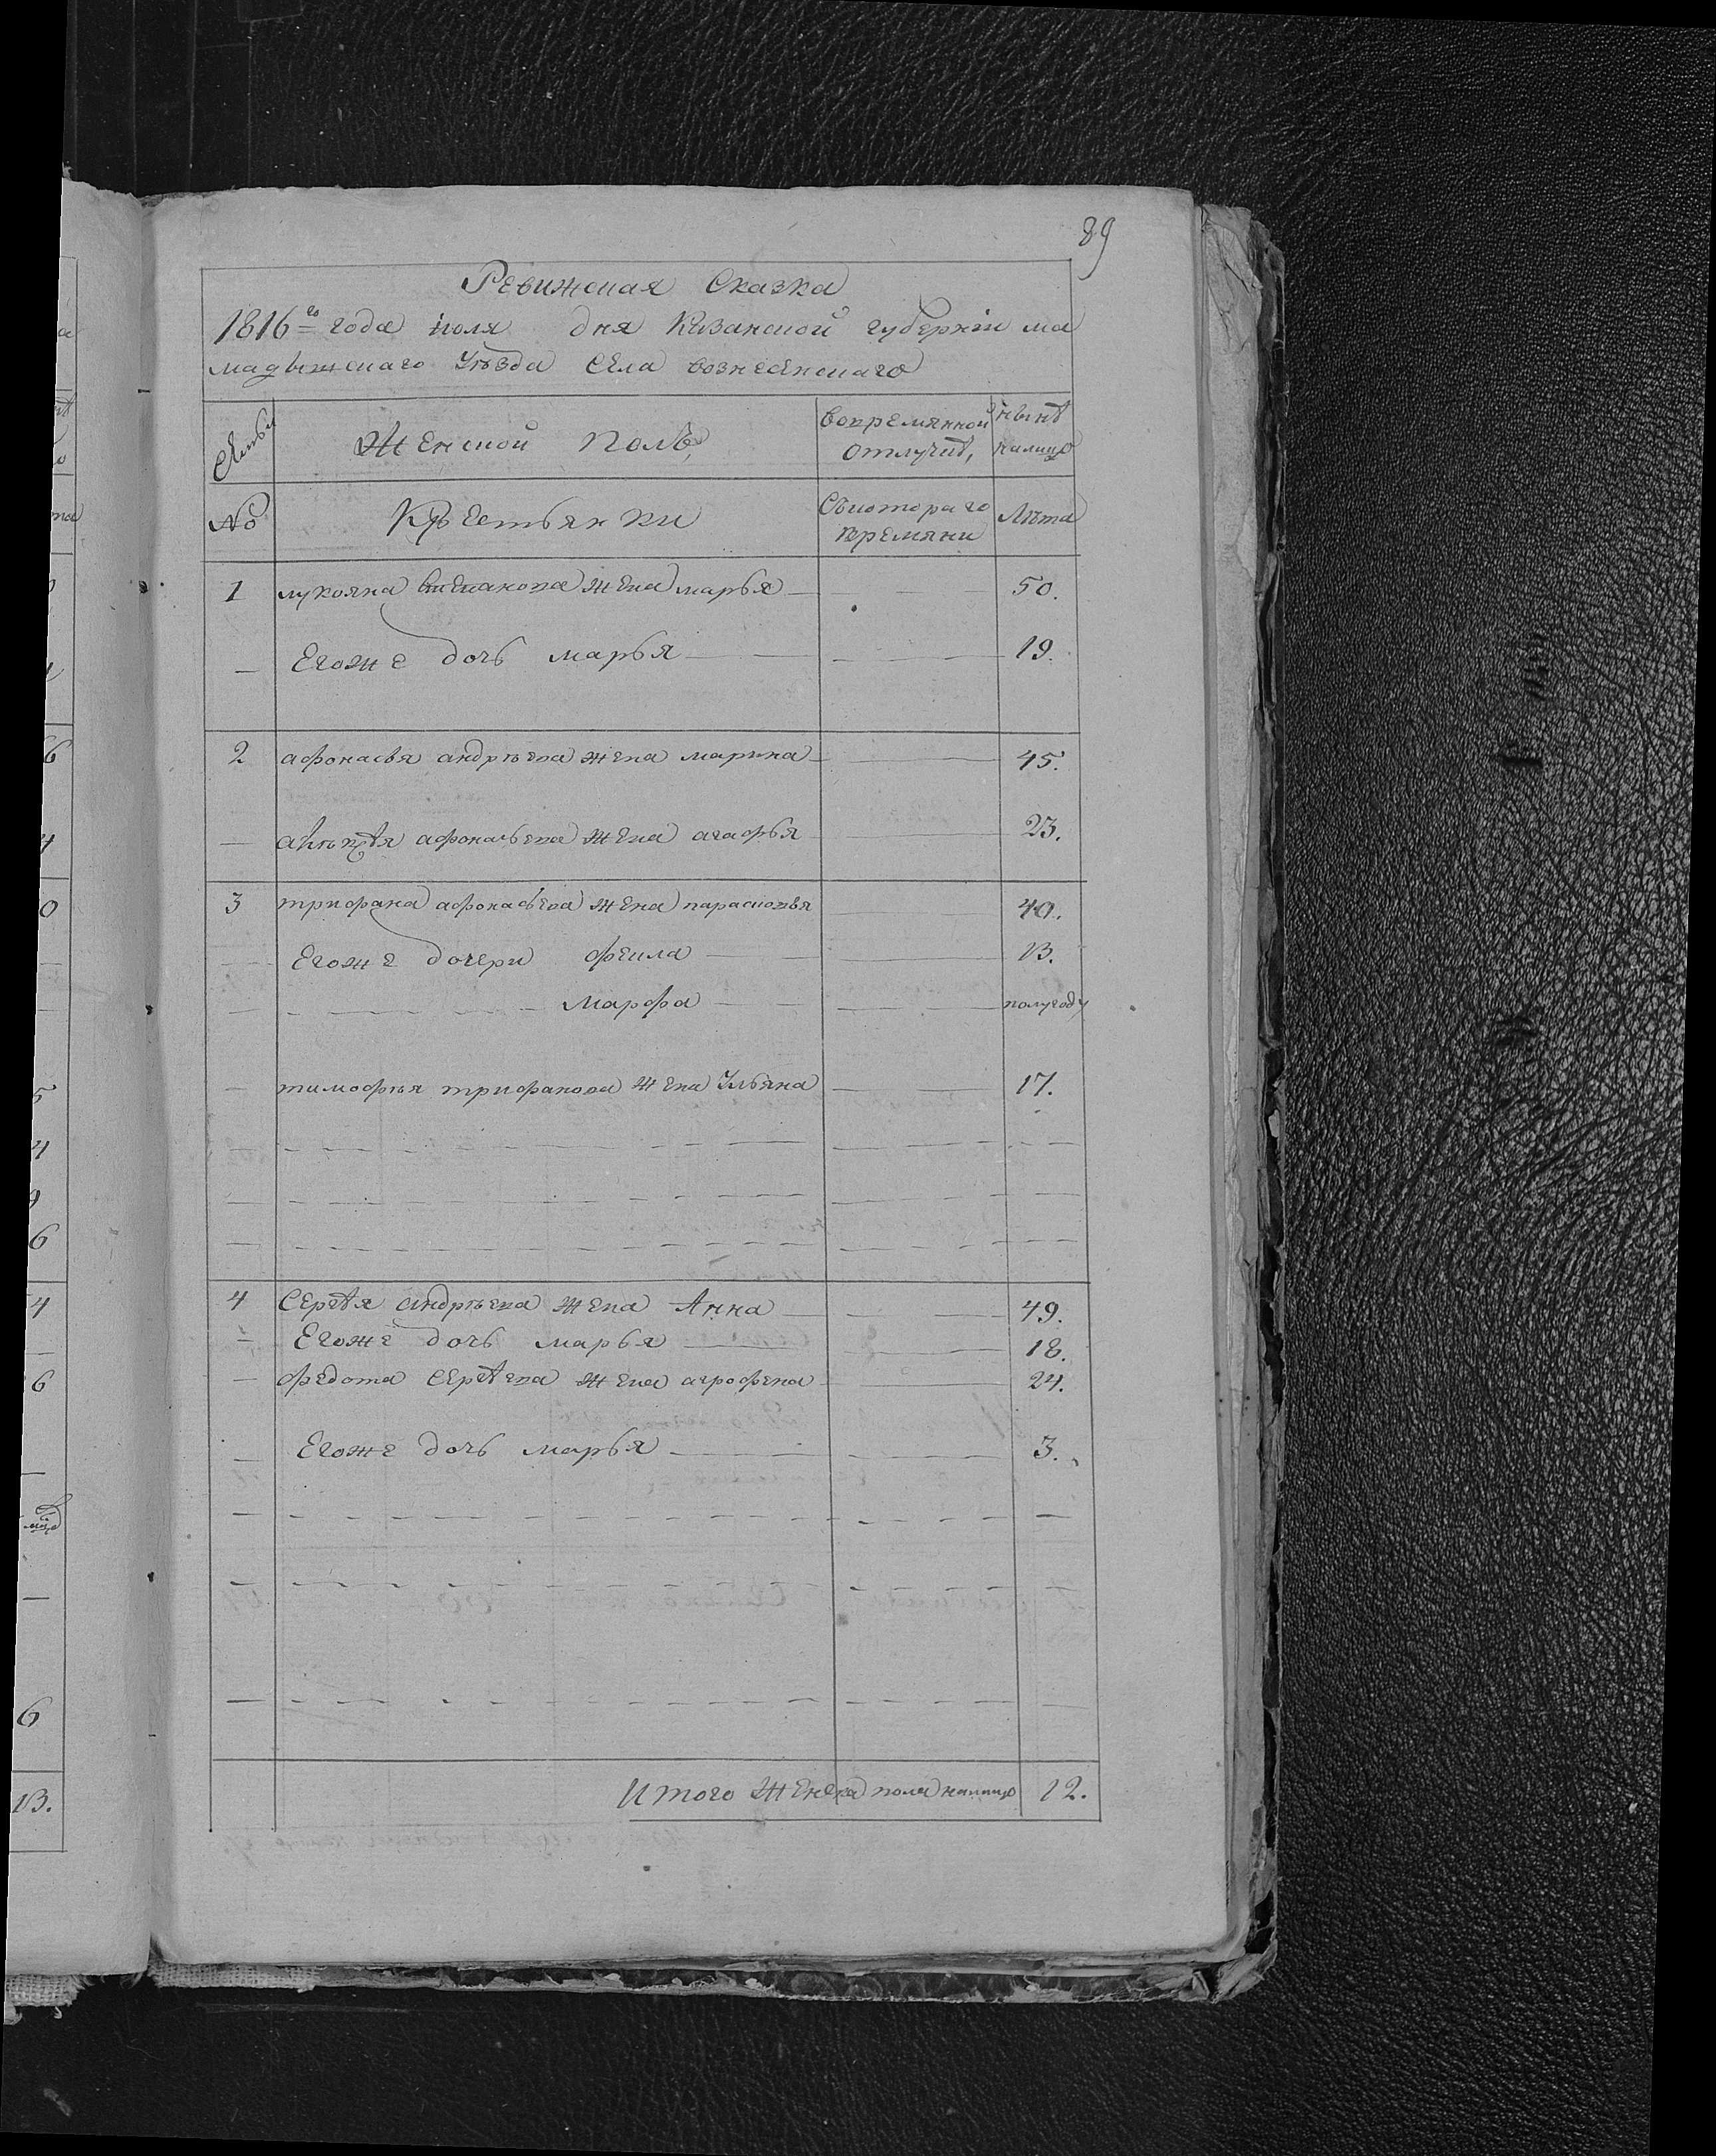 89
Ревижская Сказка
1816го года июля дня Казанской губернiи ма
мадыжскаго Уѣзда Села вознесенскаго
Семьи Женской полъ вовремянной отлучкѣ, нынѣ налицо
№ Крестьянки Скотораго времяни Лѣта
1 лукояна жена марья 50.
Егоже дочь марья 19.
2 афонасья андрѣева жена марина 45.
алѣксѣя афонасьева жена агафья 23.
3 трифана афонасьева жена парасковья 40.
Егоже дочери фекла 13.
марфа полугоду
тимофѣя трифанова жена Ульяна 17.
4 Сергѣя андрѣева жена Анна 49.
Егоже дочь марья 18.
федота Сергѣева жена агрофена 24.
Егоже дочь марья 3.
Итого женска пола налицо 12.
6
4
0
5
4
6
4
6
6
13.